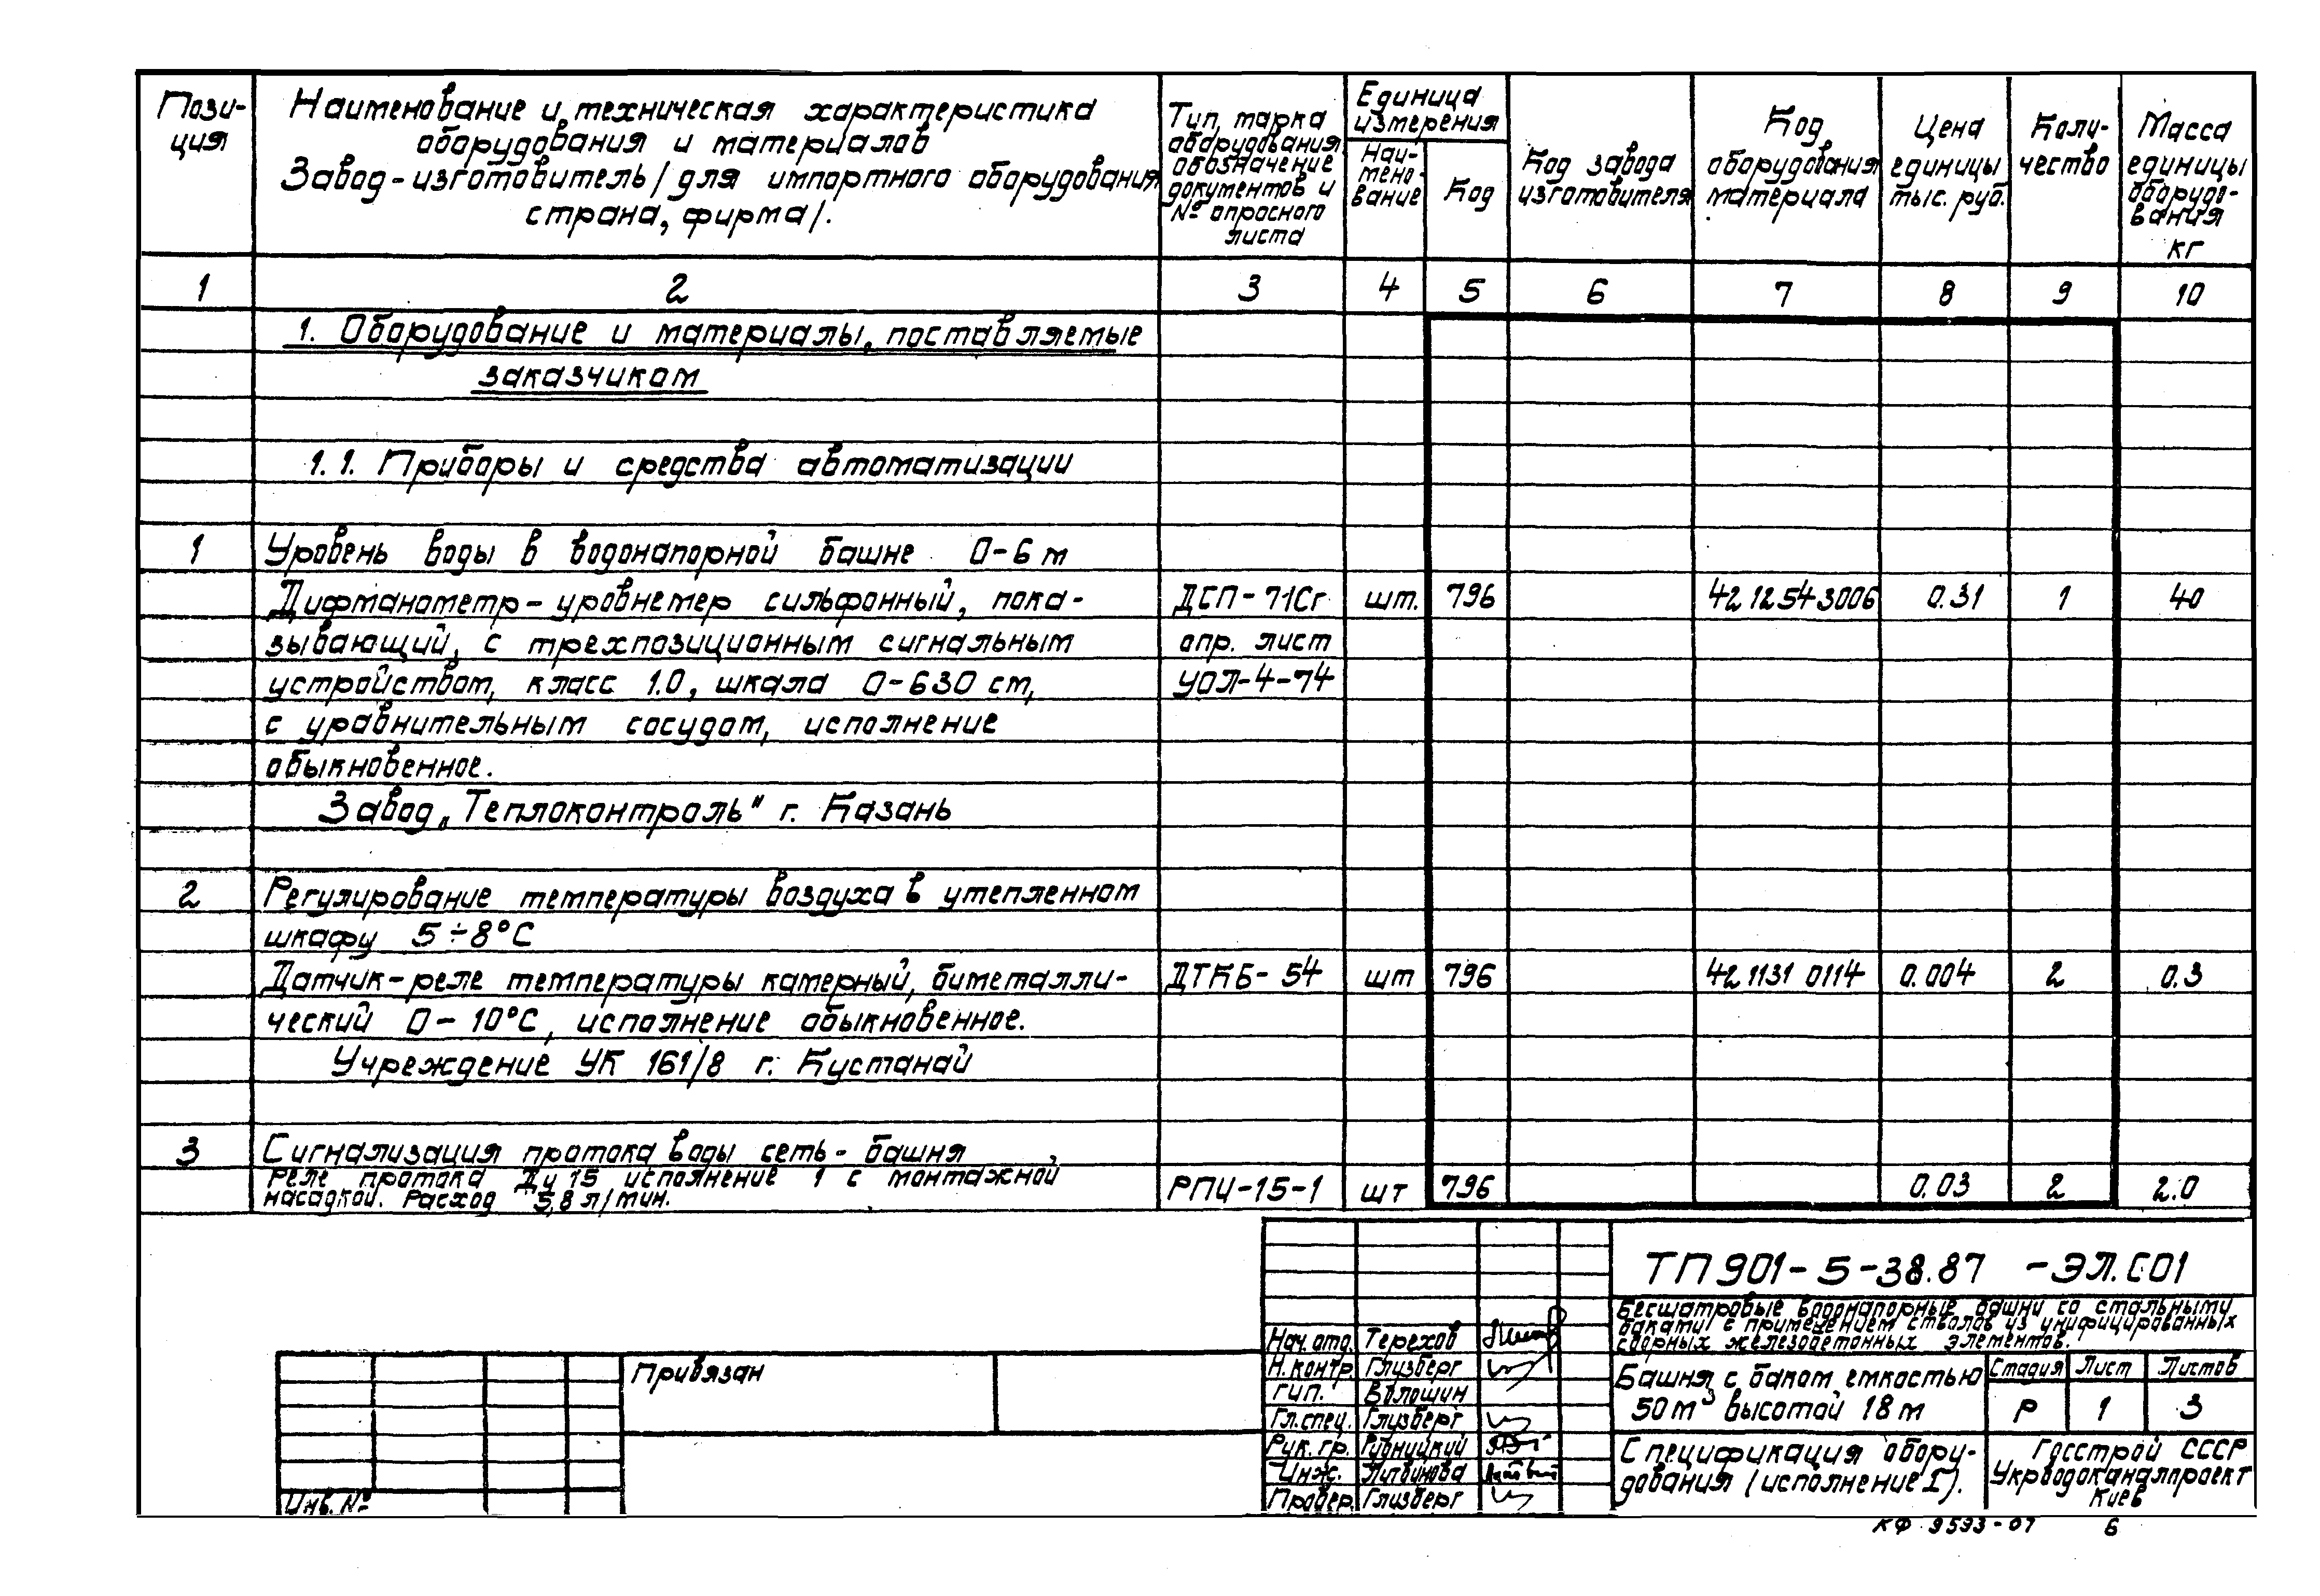 Пози-
ция
Наименование и техническая характеристика
оборудования и материалов
Завод-изготовитель/для импортного оборудования
страна, фирма/.
Тип, марка
оборудования
обозначение
документов и
№ опросного
листа
Единица
измерения
Наи-
мено-
вание
Код
Код завода
изготовителя
Код
оборудования
материала
Цена
единицы
тыс. руб.
Коли-
чество
Масса
единицы
оборудо-
вания
кг
1 2 3 4 5 6 7 8 9 10
1. Оборудование и материалы, поставляемые
заказчиком
1.1. Приборы и средства автоматизации
1 Уровень воды в водонапорной башне 0-6 м
Дифманометр-уровнемер сильфонный, пока- ДСП-71Сг шт. 796 42 1254 3006 0.31 1 40
зывающий, с трехпозиционным сигнальным опр. лист
устройством, класс 1.0, шкала 0-630 см, УОЛ-4-74
с уравнительным сосудом, исполнение
обыкновенное.
Завод „Теплоконтроль" г. Казань
2 Регулирование температуры воздуха в утепленном
шкафу 5÷8°С
Датчик-реле температуры камерный, биметалли- ДТКБ-54 шт 796 42 1131 0114 0.004 2 0.3
ческий 0-10°С, исполнение обыкновенное.
Учреждение УК 161/8 г. Кустанай
3 Сигнализация протока воды сеть-башня
Реле протока Ду 15 исполнение 1 с монтажной
насадкой. Расход 5,8 л/мин. РПИ-15-1 шт 796 0.03 2 2.0
ТП 901-5-38.87 -ЭЛ.С01
Бесшатровые водонапорные башни со стальными
баками с применением стволов из унифицированных
сборных железобетонных элементов.
Нач. отд. Терехов
Н.контр. Глузберг
ГИП. Волошин
Гл.спец. Глузберг
Рук. гр. Рубницкий
Инж. Литвинова
Провер. Глизберг
Башня с баком емкостью
50 м³ высотой 18 м
Стадия Лист Листов
Р 1 3
Спецификация обору-
дования (исполнение I).
Госстрой СССР
Укрводоканалпроект
Киев
Привязан
Инв. №
КФ 9593-07 6